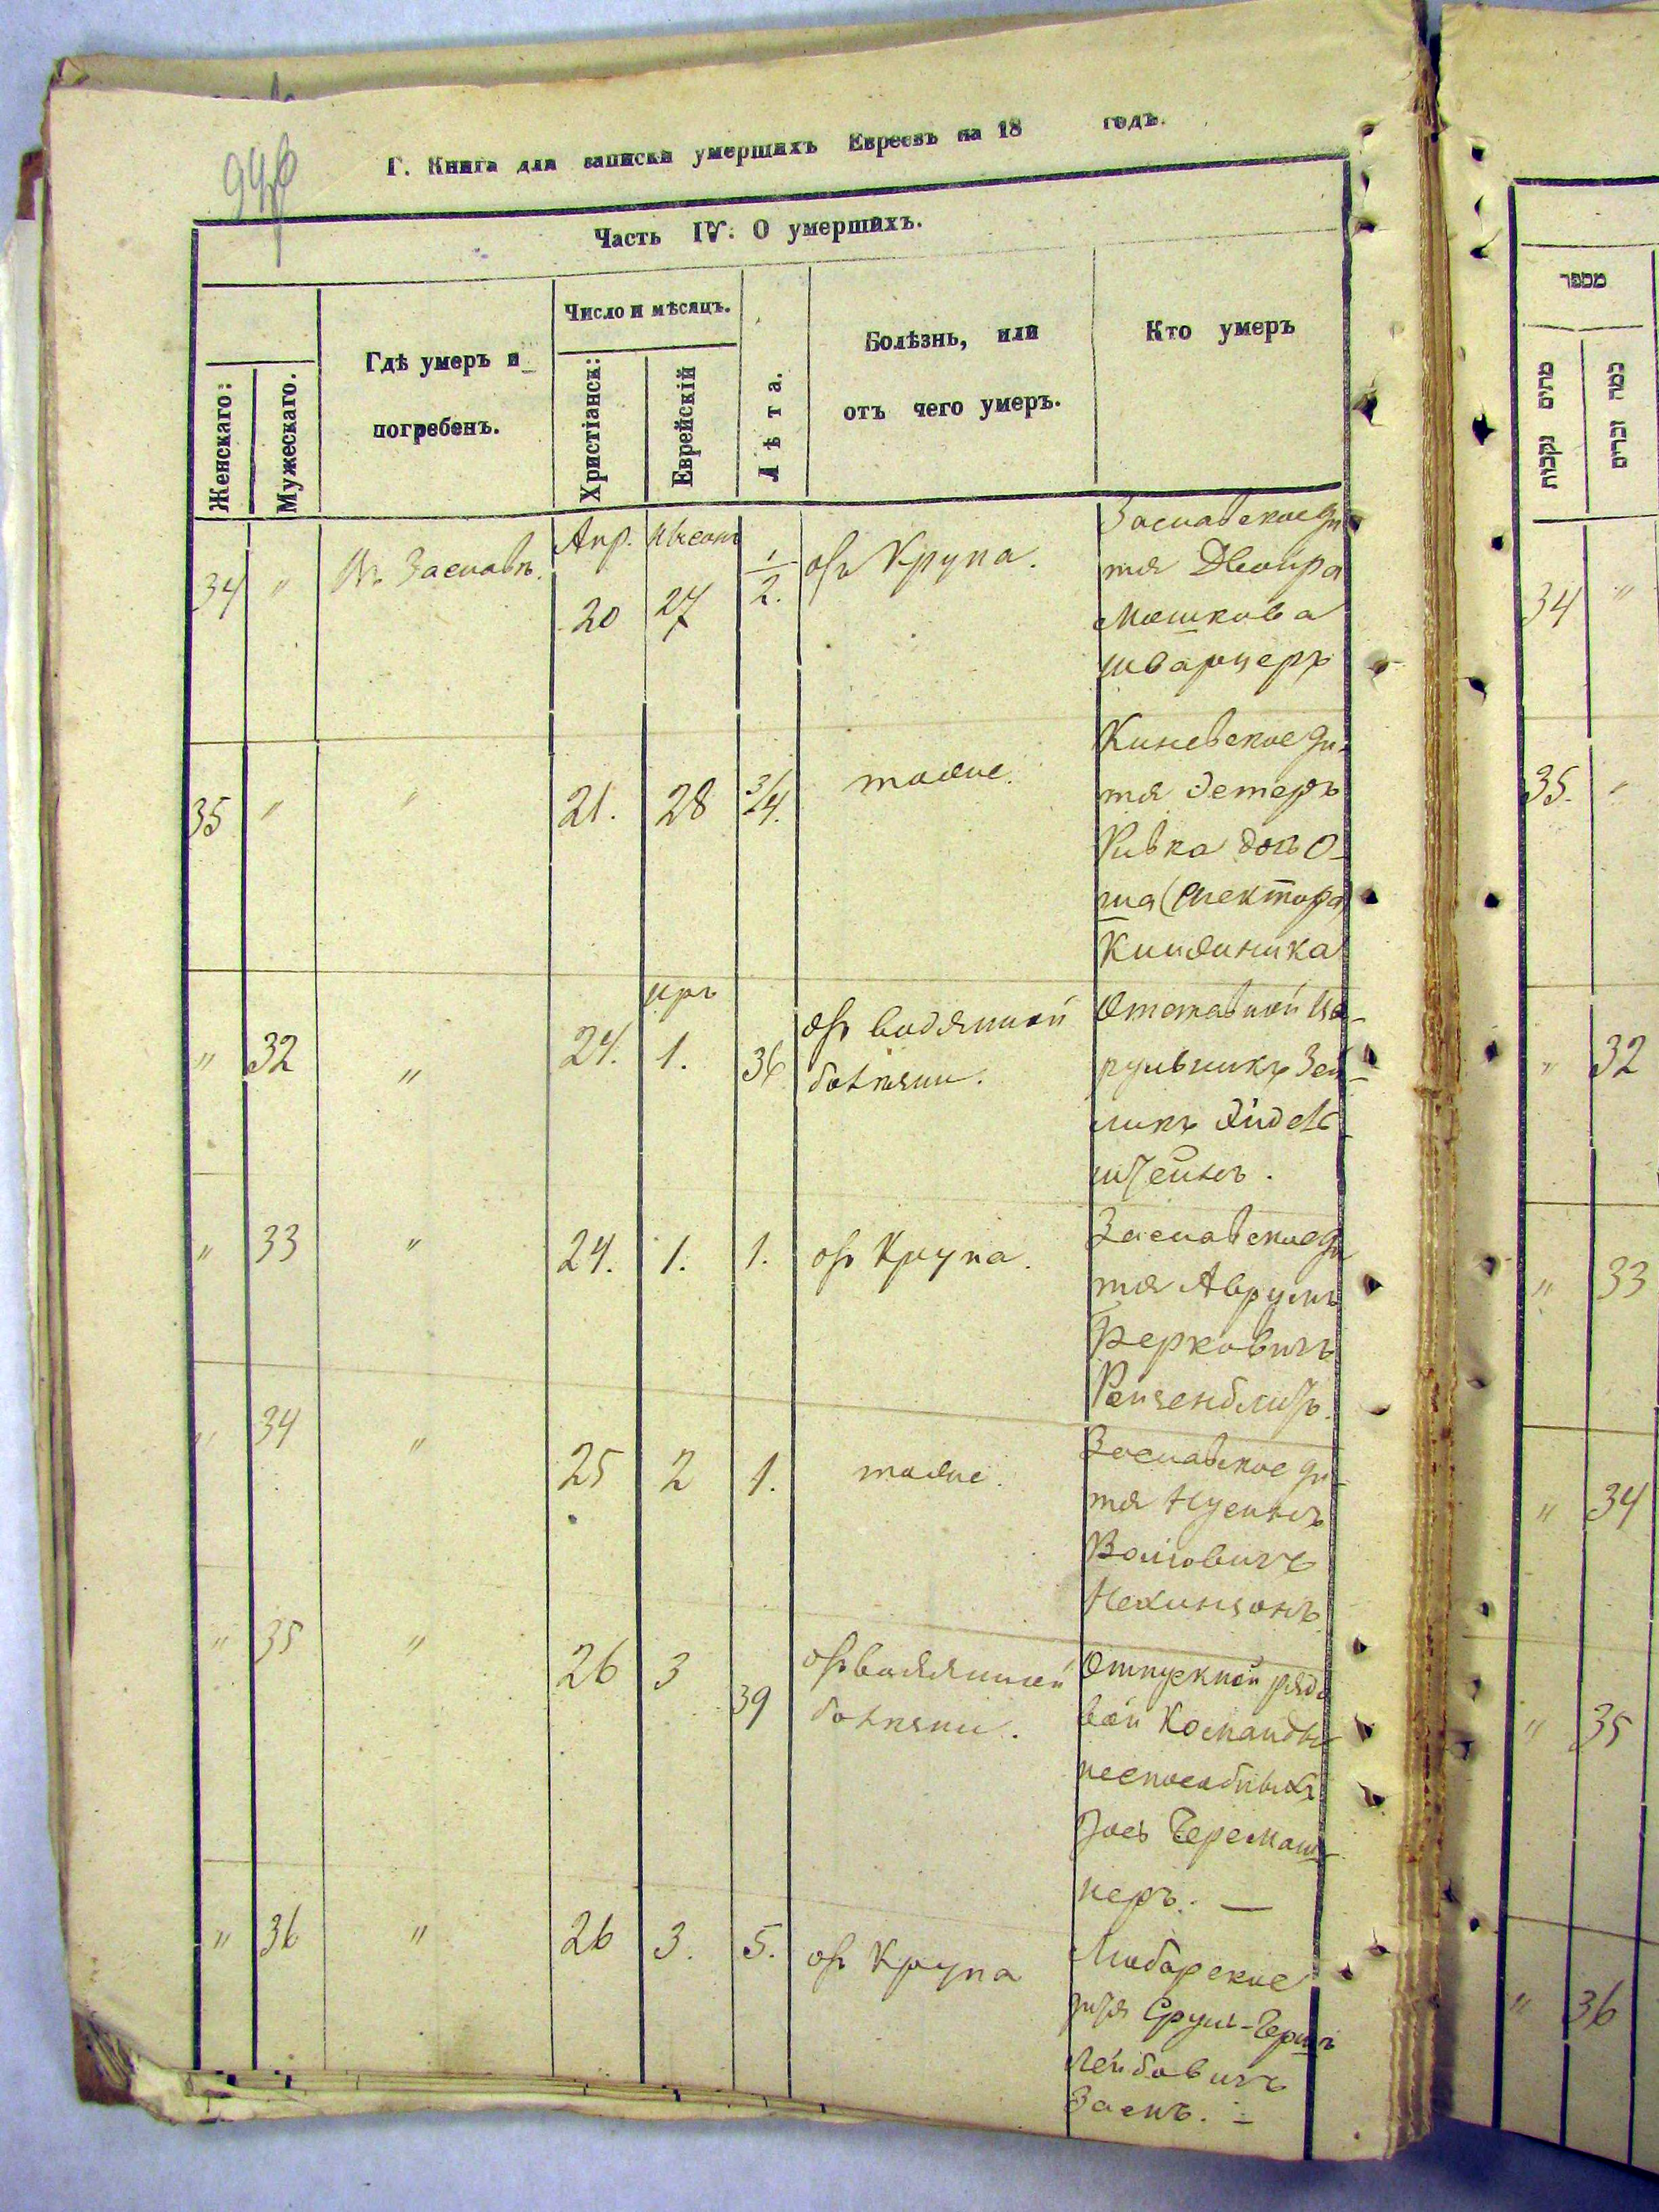 946
Г. Книга для записки умершихъ Евреевъ на 18 годъ.
Часть IV: О умершихъ.
Женскаго:
Мужескаго.
Гдѣ умеръ и
погребенъ.
Число и мѣсяцъ.
Христіанск:
Еврейскій
Лѣта.
Болѣзнь, или
отъ чего умеръ.
Кто умеръ
34 " Въ Заславѣ. Апр. 20 Нисонъ 27 1/2. отъ Крупа.
Заславское ди
тя Двойра
Мошкова
Шварцеръ
35 " " 21. 28 3/4. тоже.
Киневское ди-
тя Эстеръ
Ривка дочь О-
ша (Спектора)
" 32 " 24. иръ 1. 36 отъ водяной
болѣзни.
Отставной Ца-
рульникъ Зей-
ликъ Эйдель-
штейнъ.
" 33 " 24. 1. 1. отъ Крупа.
Заславское ди
тя Аврумъ
Берковичъ
" 34 " 25 2 1. тоже.
Заславское ди-
тя Нусинъ
Волковичъ
Нехинзонъ
" 35 " 26 3 39 отъ водяной
болѣзни.
Отпускной рядо
вой Команды
неспособныхъ
Іось Черемош-
неръ. —
" 36 " 26 3. 5. отъ Крупа
Любарское
дитя Сруль-Герш
Лейбовичъ
Засъ. —
מספר
מתים נקבות
כמה זכרים
34 "
35. "
" 32
" 33
" 34
" 35
" 36